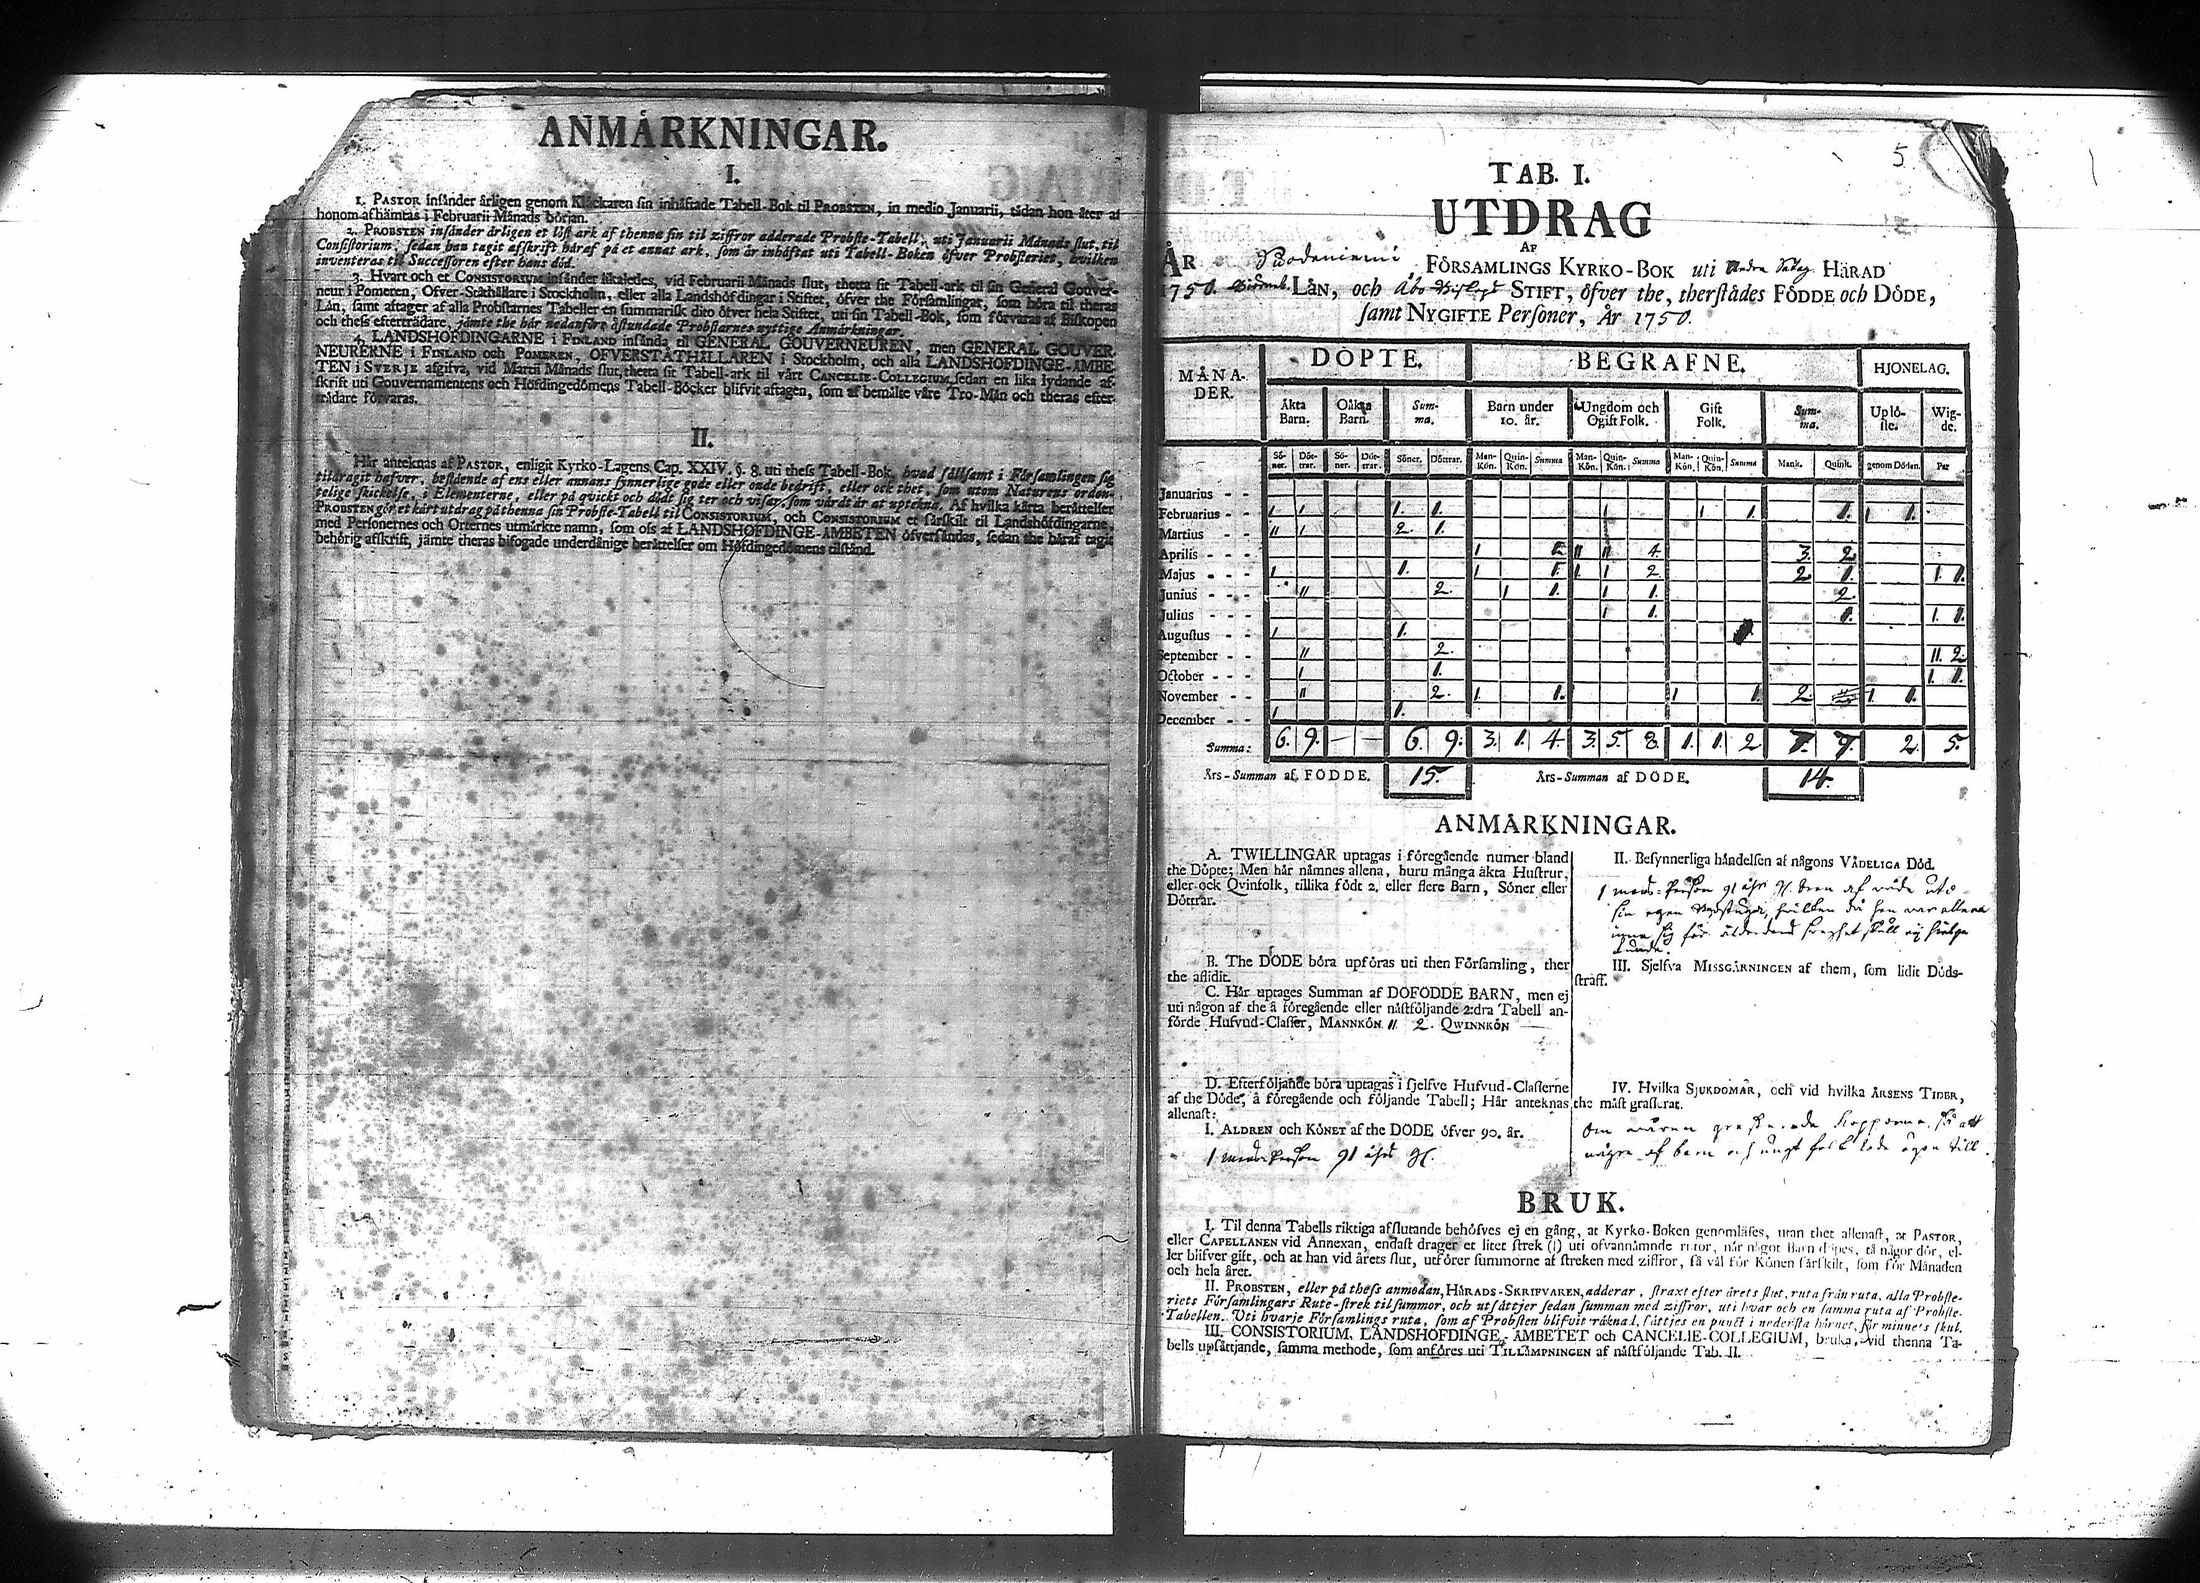 ANMÄRKNINGAR.
I.
1. PASTOR insänder årligen genom Klåckaren sin inhäftade Tabell-Bok til PROBSTEN, in medio Januarii, tådan hon åter af
honom afhämtas i Februarii Månads början.
2. PROBSTEN insänder årligen et löst ark af thenna sin til ziffror adderade Probste-Tabell, uti Januarii Månads slut, til
Consistorium, sedan han tagit afskrift häraf på et annat ark, som är inhäftat uti Tabell-Boken öfver Probsteriet, hvilken
inventeras til Successoren efter hans död.
3. Hvart och et CONSISTORIUM insänder likaledes, vid Februarii Månads slut, thetta sit Tabell-ark til sin General Gouver-
neur i Pomeren, Öfver-Ståthållare i Stockholm, eller alla Landshöfdingar i Stiftet, öfver the Församlingar, som höra til theras
Län, samt aftager af alla Probstarnes Tabeller en summarisk dito öfver hela Stiftet, uti sin Tabell-Bok, som förvaras af Biskopen
och thess efterträdare, jämte the här nedanföre åstundade Probstarnes nyttige Anmärkningar.
4. LANDSHÖFDINGARNE i FINLAND insända til GENERAL GOUVERNEUREN, men GENERAL GOUVER-
NEURERNE i FINLAND och POMEREN, ÖFVERSTÅTHÅLLAREN i Stockholm, och alla LANDSHÖFDINGE-ÄMBE-
TEN i SVERJE afgifva, vid Martii Månads slut, thetta sit Tabell-ark til vårt CANCELIE-COLLEGIUM, sedan en lika lydande af-
skrift uti Gouvernamentens och Höfdingedömens Tabell-Böcker blifvit aftagen, som af bemälte våre Tro-Män och theras efter-
trädare förvaras.
II.
Här anteknas af PASTOR, enligit Kyrko-Lagens Cap. XXIV. §. 8. uti thess Tabell-Bok, hvad sällsamt i Församlingen sig
tildragit hafver, bestående af ens eller annans synnerlige gode eller onde bedrift, eller ock thet, som utom Naturens orden-
telige skickelse, i Elementerne, eller på quickt och dödt sig ter och visar, som värdt är at uptekna. Af hvilka kärta berättelser
PROBSTEN gör et kärt utdrag på thenna sin Probste-Tabell til CONSISTORIUM, och CONSISTORIUM et särskilt til Landshöfdingarne,
med Personernes och Orternes utmärkte namn, som oss af LANDSHÖFDINGE-ÄMBETEN öfversändas, sedan the häraf tagit
behörig afskrift, jämte theras bifogade underdånige berättelser om Höfdingedömens tilstånd.
5
TAB. I.
UTDRAG
AF
ÅR Suodeniemi FÖRSAMLINGS KYRKO-BOK uti HÄRAD
1750. LÄN, och Åbo STIFT, öfver the, therstädes FÖDDE och DÖDE,
samt NYGIFTE Personer, År 1750.
MÅNA- DÖPTE. BEGRAFNE. HJONELAG.
DER.
Äkta Barn. Oäkta Barn. Sum-ma. Barn under 10. år. Ungdom och Ogift Folk. Gift Folk. Sum-ma. Uplö-ste. Wig-de.
Sö-ner. Döt-trar. Sö-ner. Döt-trar. Söner. Döttrar. Man-Kön. Quin-Kön. Summa Man-Kön. Quin-Kön. Summa Man-Kön. Quin-Kön. Summa Mank. Quink. genom Döden. Par
Januarius - -
Februarius - - 1 1 1. 1. 1 1 1. 1. 1 1.
Martius - - 11 1 2. 1.
Aprilis - - - 1 11 11 4. 3. 2
Majus - - - 1 1. 1 1. 1. 1 2 2 1. 1. 1.
Junius - - - 11 2. 1 1. 1 1. 2.
Julius - - - 1 1. 1. 1. 1.
Augustus - - 1 1.
September - - 11 2. 11. 2.
October - - - 1 1. 1. 1.
November - - 11 2. 1. 1. 1 1. 2. 1. 1.
December - - 1 1.
Summa: 6. 9. — — 6. 9. 3. 1. 4. 3. 5. 8. 1. 1. 2 7. 7. 2. 5.
Års-Summan af FÖDDE. 15. Års-Summan af DÖDE. 14.
ANMÄRKNINGAR.
A. TWILLINGAR uptagas i föregående numer bland
the Döpte; Men här nämnes allena, huru många äkta Hustrur,
eller ock Qvinfolk, tillika födt 2. eller flere Barn, Söner eller
Döttrar.
B. The DÖDE böra upföras uti then Församling, ther
the aflidit.
C. Här uptages Summan af DÖFÖDDE BARN, men ej
uti någon af the å föregående eller nästföljande 2:dra Tabell an-
förde Hufvud-Classer, MANNKÖN. 11 2. QWINNKÖN —
D. Efterföljande böra uptagas i sjelfve Hufvud-Classerne
af the Döde, å föregående och följande Tabell; Här anteknas
allenast:
I. ÅLDREN och KÖNET af the DÖDE öfver 90. år.
1 mans-Person 91 åhrs gl.
II. Besynnerliga händelsen af någons VÅDELIGA Död.
1 mans-Person 91 åhr gl. bren af våda uti
sin egen Badstuga, hvilken då han var allena
inne sig för ålderdoms skull ej hielpa
kunde.
III. Sjelfva MISSGÄRNINGEN af them, som lidit Döds-
straff.
IV. Hvilka SJUKDOMAR, och vid hvilka ÅRSENS TIDER,
the mäst grasserat.
Om våren grasserade kopporna, så att
några af barn och ungt folk dödde igen till.
BRUK.
I. Til denna Tabells riktiga afslutande behöfves ej en gång, at Kyrko-Boken genomläses, utan thet allenast, at PASTOR,
eller CAPELLANEN vid Annexan, endast drager et litet strek (I) uti ofvannämnde rutor, när något Barn döpes, tå någor dör, el-
ler blifver gift, och at han vid årets slut, utförer summorne af streken med ziffror, så väl för Könen särskilt, som för Månaden
och hela året.
II. PROBSTEN, eller på thess anmodan, HÄRADS-SKRIFVAREN, adderar, straxt efter årets slut, ruta från ruta, alla Probste-
riets Församlingars Rute-strek til summor, och utsättjer sedan summan med ziffror, uti hvar och en samma ruta af Probste-
Tabellen. Uti hvarje Församlings ruta, som af Probsten blifvit räknad, sättjes en punct i nedersta hörnet, för minnets skul.
III. CONSISTORIUM, LANDSHÖFDINGE-ÄMBETET och CANCELIE-COLLEGIUM, bruka, vid thenna Ta-
bells upsättjande, samma methode, som anföres uti TILLÄMPNINGEN af nästföljande Tab. II.